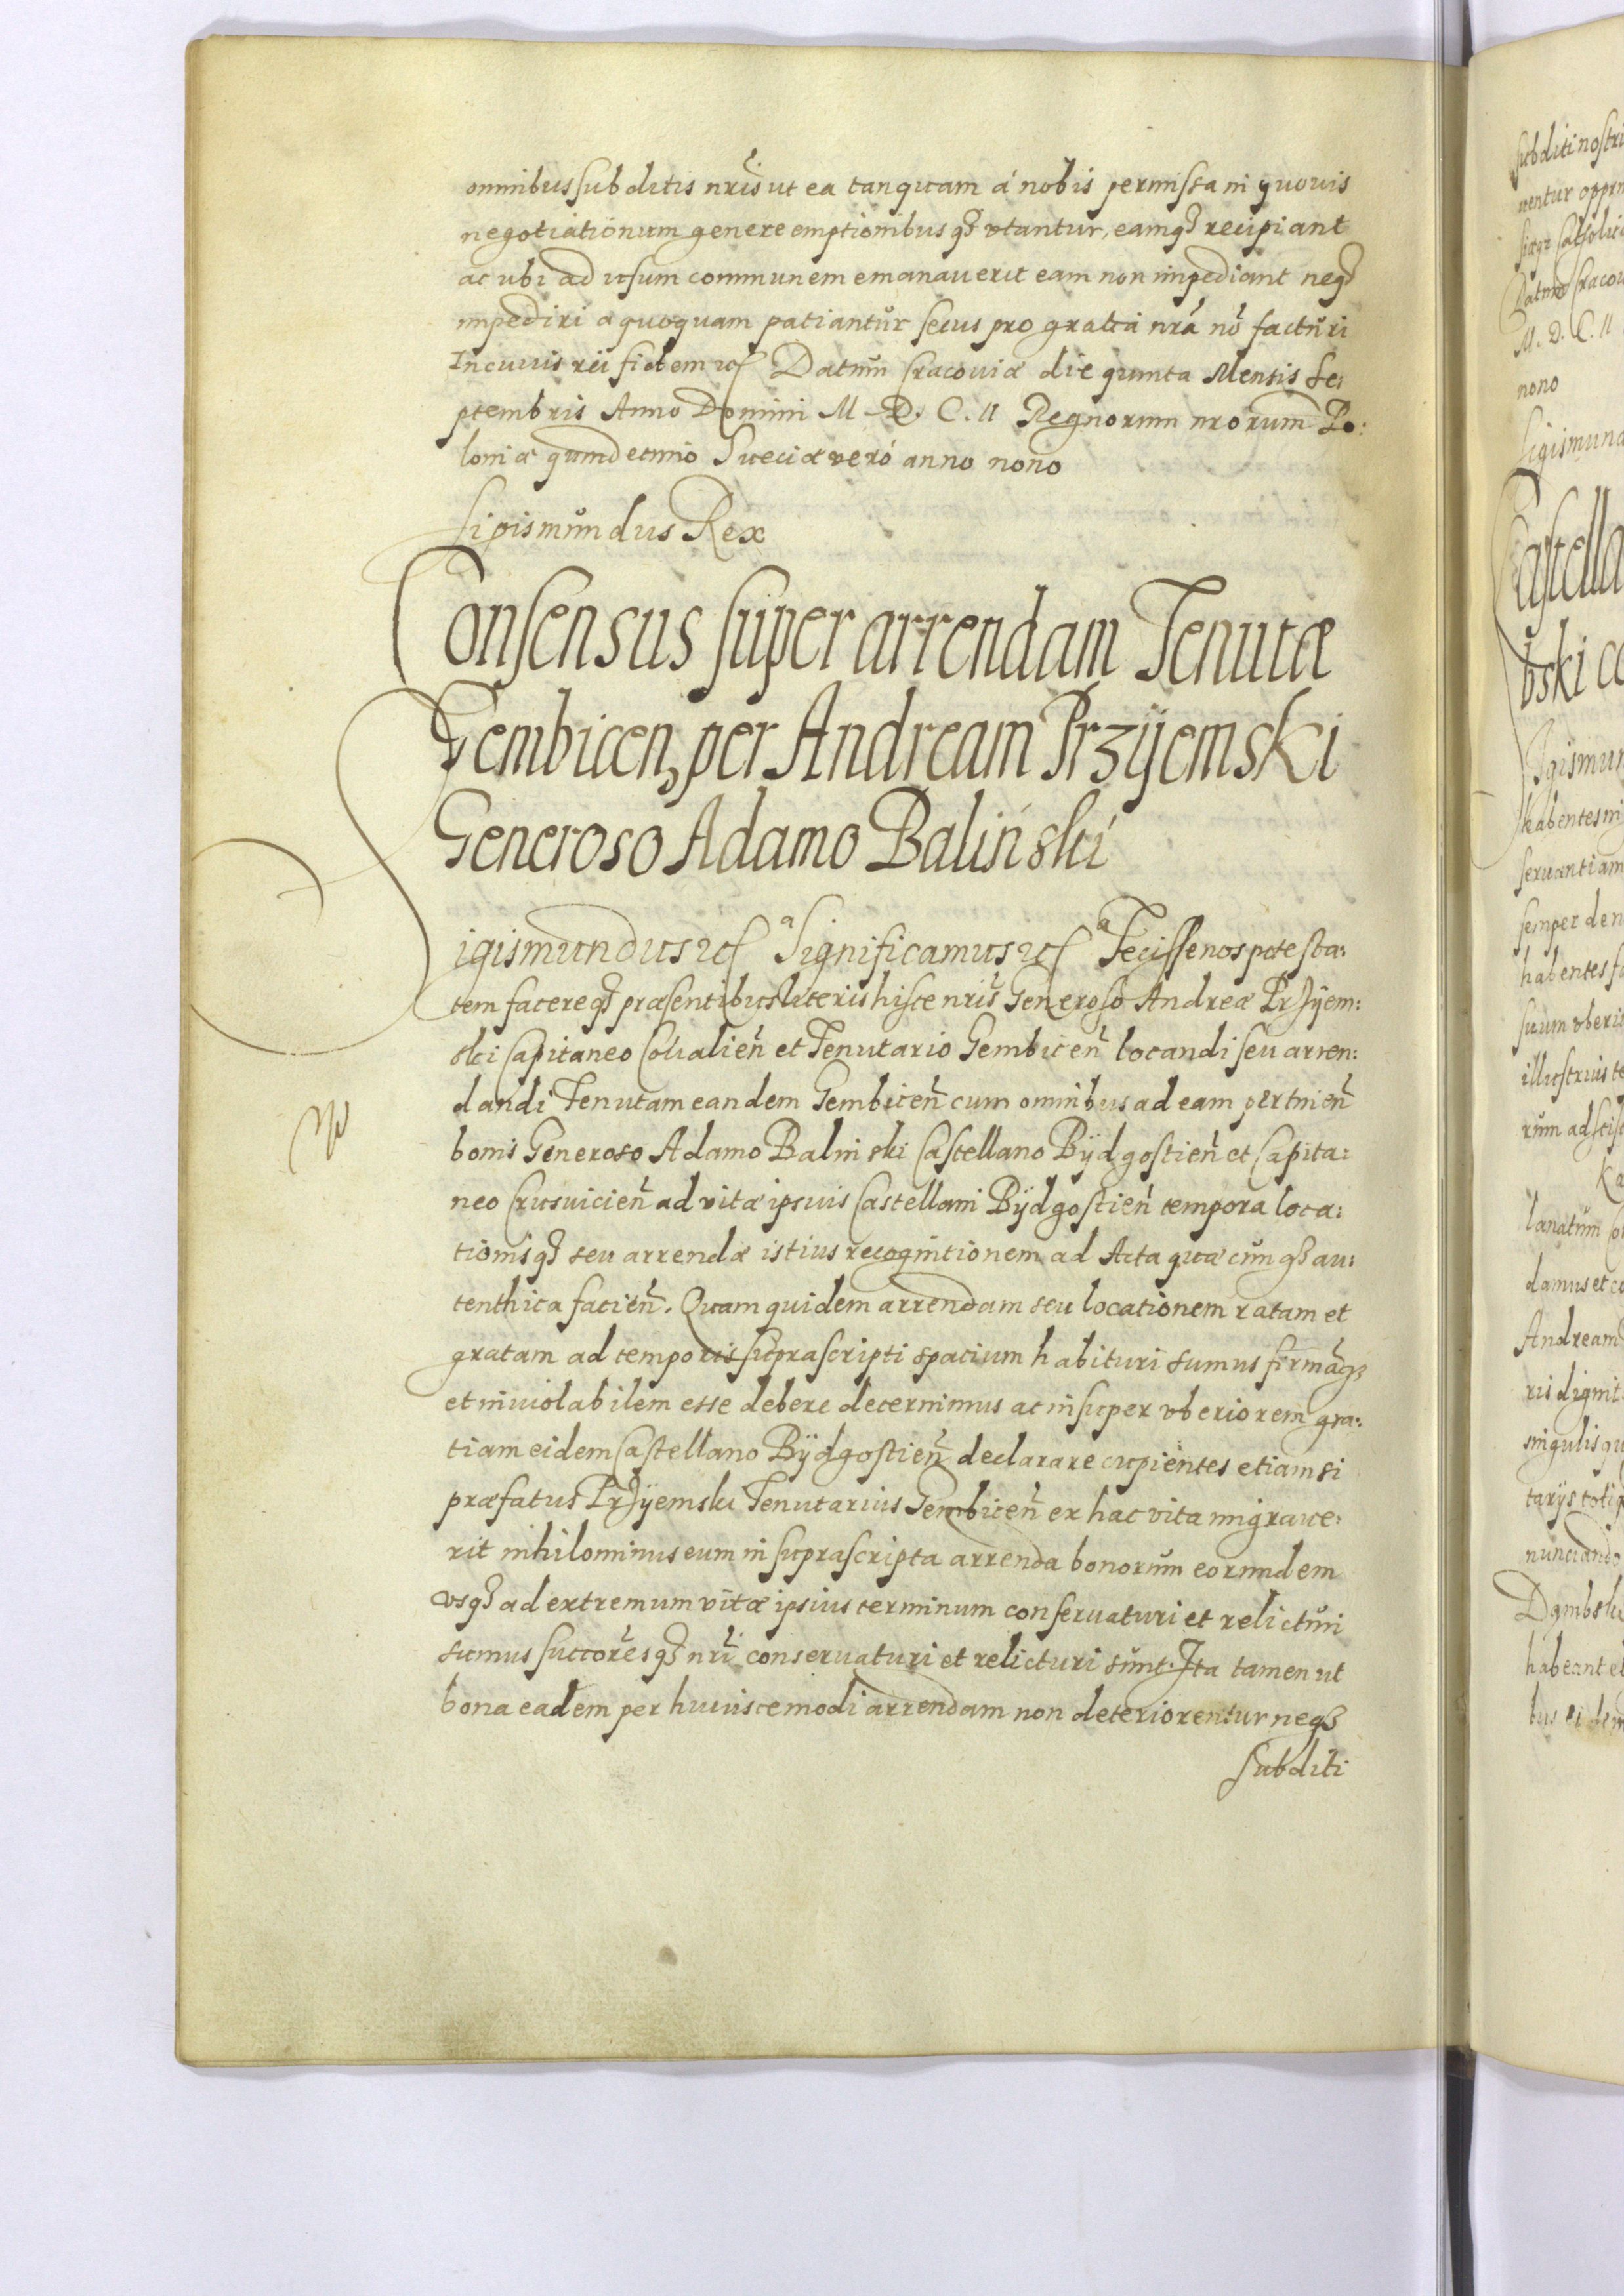 omnibus subditis nrīs ut ea tanquam á nobis permissa in quovis
negotiationum genere emptionibusq3 vtantur, eamq3 recipiant
ac ubi ad usum communem emanaverit eam non impediant neq3
impediri a quoquam patiantur secus pro gratia nrá nō facturi
In cuius rei fidem etc Datum Cracoviæ die quinta Mensis Se:
ptembris Anno Domini M. D. C. II Regnorum nrorum Po:
loniæ quindecimo Sueciæ veró anno nono
Sigismundus Rex
Consensus super arrendam Tenutæ
Gembicen, per Andream Przÿemski
Generoso Adamo Balinski
Sigismundus etc Significamus etc Fecisse nos potesta:
tem facereq3 præsentibus literis hisce nrīs Generoso Andreæ Przÿem:
ski Capitaneo Covalien̄ et Tenutario Gembicen̄ locandi seu arren:
dandi Tenutam eandem Gembicen̄ cum omnibus ad eam pertinen̄
bonis Generoso Adamo Balinski Castellano Bÿdgostien̄ et Capita:
neo Crusvicien̄ ad vitæ ipsius Castellani Bÿdgostien̄ tempora loca:
tionisq3 seu arrendæ istius recognitionem ad Acta quæcunq3 au:
tenthica facien̄. Quam quidem arrendam seu locationem ratam et
gratam ad temporis suprascripti spacium habituri sumus firmāq3
et inviolabilem esse debere decernimus ac insuper vberiorem gra:
tiam eidem Castellano Bÿdgostien̄ declarare cupientes etiamsi
præfatus Przÿemski Tenutarius Gembicen̄ ex hac vita migrave:
rit nihilominus eum in suprascripta arrenda bonorum eorundem
vsq3 ad extremum vitæ ipsius terminum conservaturi et relicturi
sumus succorēsq3 nrī conservaturi et relicturi sunt. Ita tamen ut
bona eadem per huiuscemodi arrendam non deteriorentur neq3
subditi